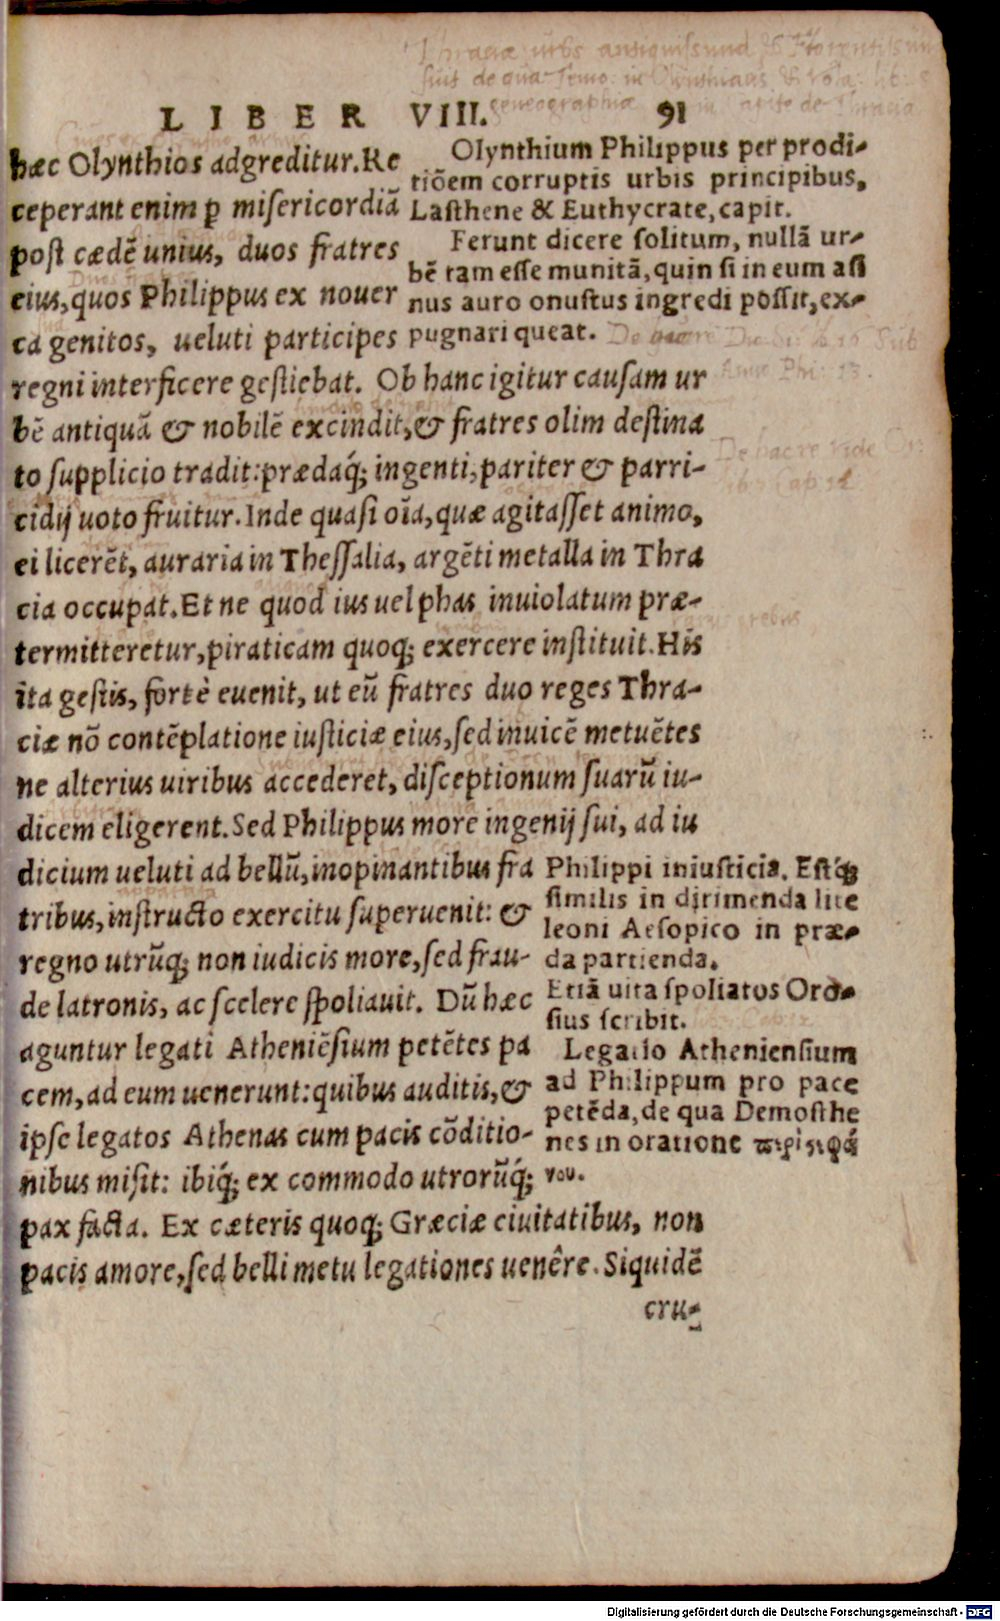 LIBER VIII. 91
hæc Olynthios adgreditur. Re
ceperant enim ꝑ misericordiã
post cædẽ unius, duos fratres
eius, quos Philippus ex nouer
ca genitos, ueluti participes
regni interficere gestiebat. Ob hanc igitur causam ur
bẽ antiquã & nobilẽ excindit, & fratres olim destina
to supplicio tradit: prædaq́; ingenti, pariter & parri-
cidij uoto fruitur. Inde quasi oĩa, quæ agitasset animo,
ei licerẽt, auraria in Thessalia, argẽti metalla in Thra
cia occupat. Et ne quod ius uel phas inuiolatum præ-
termitteretur, piraticam quoq; exercere instituit. His
ita gestis, fortè euenit, ut eũ fratres duo reges Thra-
ciæ nõ contẽplatione iusticiæ eius, sed inuicẽ metuẽtes
ne alterius uiribus accederet, disceptionum suarũ iu-
dicem eligerent. Sed Philippus more ingenij sui, ad iu
dicium ueluti ad bellũ, inopinantibus fra
tribus, instructo exercitu superuenit: &
regno utrũq; non iudicis more, sed frau-
de latronis, ac scelere spoliauit. Dũ hæc
aguntur legati Atheniẽsium petẽtes pa
cem, ad eum uenerunt: quibus auditis, &
ipse legatos Athenas cum pacis cõditio-
nibus misit: ibiq́; ex commodo utrorũq́;
pax facta. Ex cæteris quoq; Græciæ ciuitatibus, non
pacis amore, sed belli metu legationes uenêre. Siquidẽ
cru-
Olynthium Philippus per prodi-
tiõem corruptis urbis principibus,
Lasthene & Euthycrate, capit.
Ferunt dicere solitum, nullã ur-
bẽ tam esse munitã, quin si in eum asi
nus auro onustus ingredi possit, ex-
pugnari queat.
Philippi iniusticia. Estq́;
similis in dirimenda lite
leoni Aesopico in præ-
da partienda.
Etiã uita spoliatos Oro-
sius scribit.
Legatio Atheniensium
ad Philippum pro pace
petẽda, de qua Demosthe
nes in oratione
Digitalisierung gefördert durch die Deutsche Forschungsgemeinschaft - DFG